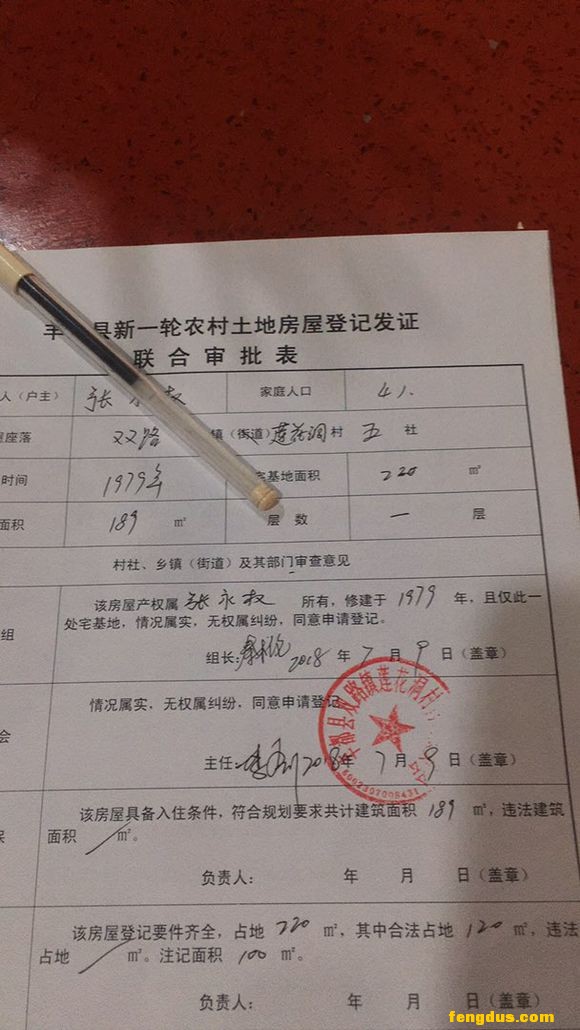 丰 县新一轮农村土地房屋登记发证
联合审批表
人（户主） 张永权 家庭人口 4人
座落 双路 镇（街道）莲花洞村 五 社
时间 1979年 宅基地面积 220 ㎡
面积 189 ㎡ 层数 一 层
村社、乡镇（街道）及其部门审查意见
组
该房屋产权属 张永权 所有，修建于 1979 年，且仅此一
处宅基地，情况属实，无权属纠纷，同意申请登记。
组长： 2018 年 7 月 9 日（盖章）
会
情况属实，无权属纠纷，同意申请登记
主任： 2018年 7 月 9 日（盖章）
都县双路镇莲花洞村
5002307006431
该房屋具备入住条件，符合规划要求共计建筑面积 189 ㎡，违法建筑
面积 / ㎡。
负责人： 年 月 日（盖章）
该房屋登记要件齐全，占地 220 ㎡，其中合法占地 120 ㎡，违法
占地 / ㎡。注记面积 100 ㎡。
负责人： 年 月 日（盖章）
fengdus.com